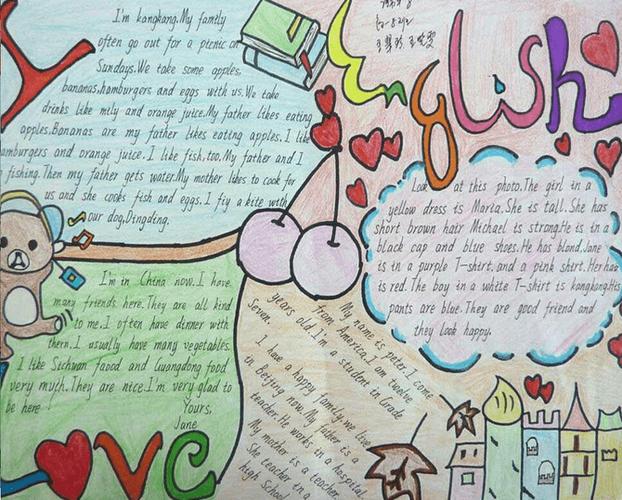 I
English
I'm kangkang.My family
often go out for a picnic on
Sundays.We take some apples,
bananas,hamburgers and eggs with us.We take
drinks like mily and orange juice.My father likes eating
apples.Bananas are my father likes eating apples.I like
hamburgers and orange juice.I like fish,too.My father and I
fishing.Then my father gets water.My mother likes to cook for
us and she cooks fish and eggs.I fiy a kite with
our dog,Dingding.
Look at this photo.The girl in a
yellow dress is Maria.She is tall.She has
short brown hair Michael is strong.He is in a
black cap and blue shoes.He has blond.Jane
is in a purple T-shirt.and a pink shirt.Her hair
is red.The boy in a white T-shirt is kangkang.His
pants are blue.They are good friend and
they look happy.
I'm in China now.I have
many friends here.They are all kind
to me.I often have dinner with
them.I usually have many vegetables.
I like Sichuan faood and Guangdong food
very myth.They are nice.I'm very glad to
be here
Yours,
Jane
My name is peter.I come
from America,I am twelve
years old.I'm a student in Grade
Seven.
I have a happy family.we live
in Beijing now.My father is a
teacher.He works in a hospital.
My mother is a teacher.
She teacher in a
high School
love